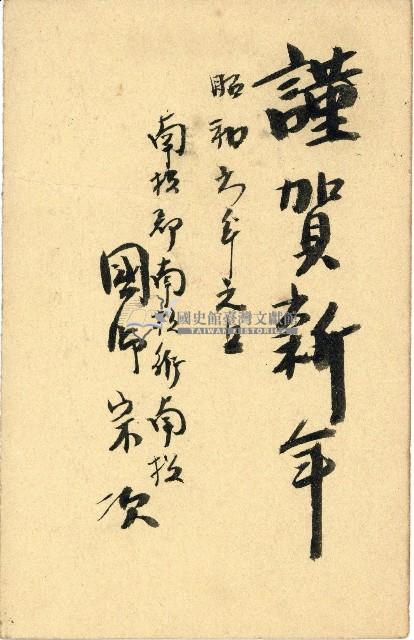 謹賀新年
昭和六年元旦
南投郡南投街南投
國府宗次
國史館臺灣文獻館
TAIWAN HISTORICA